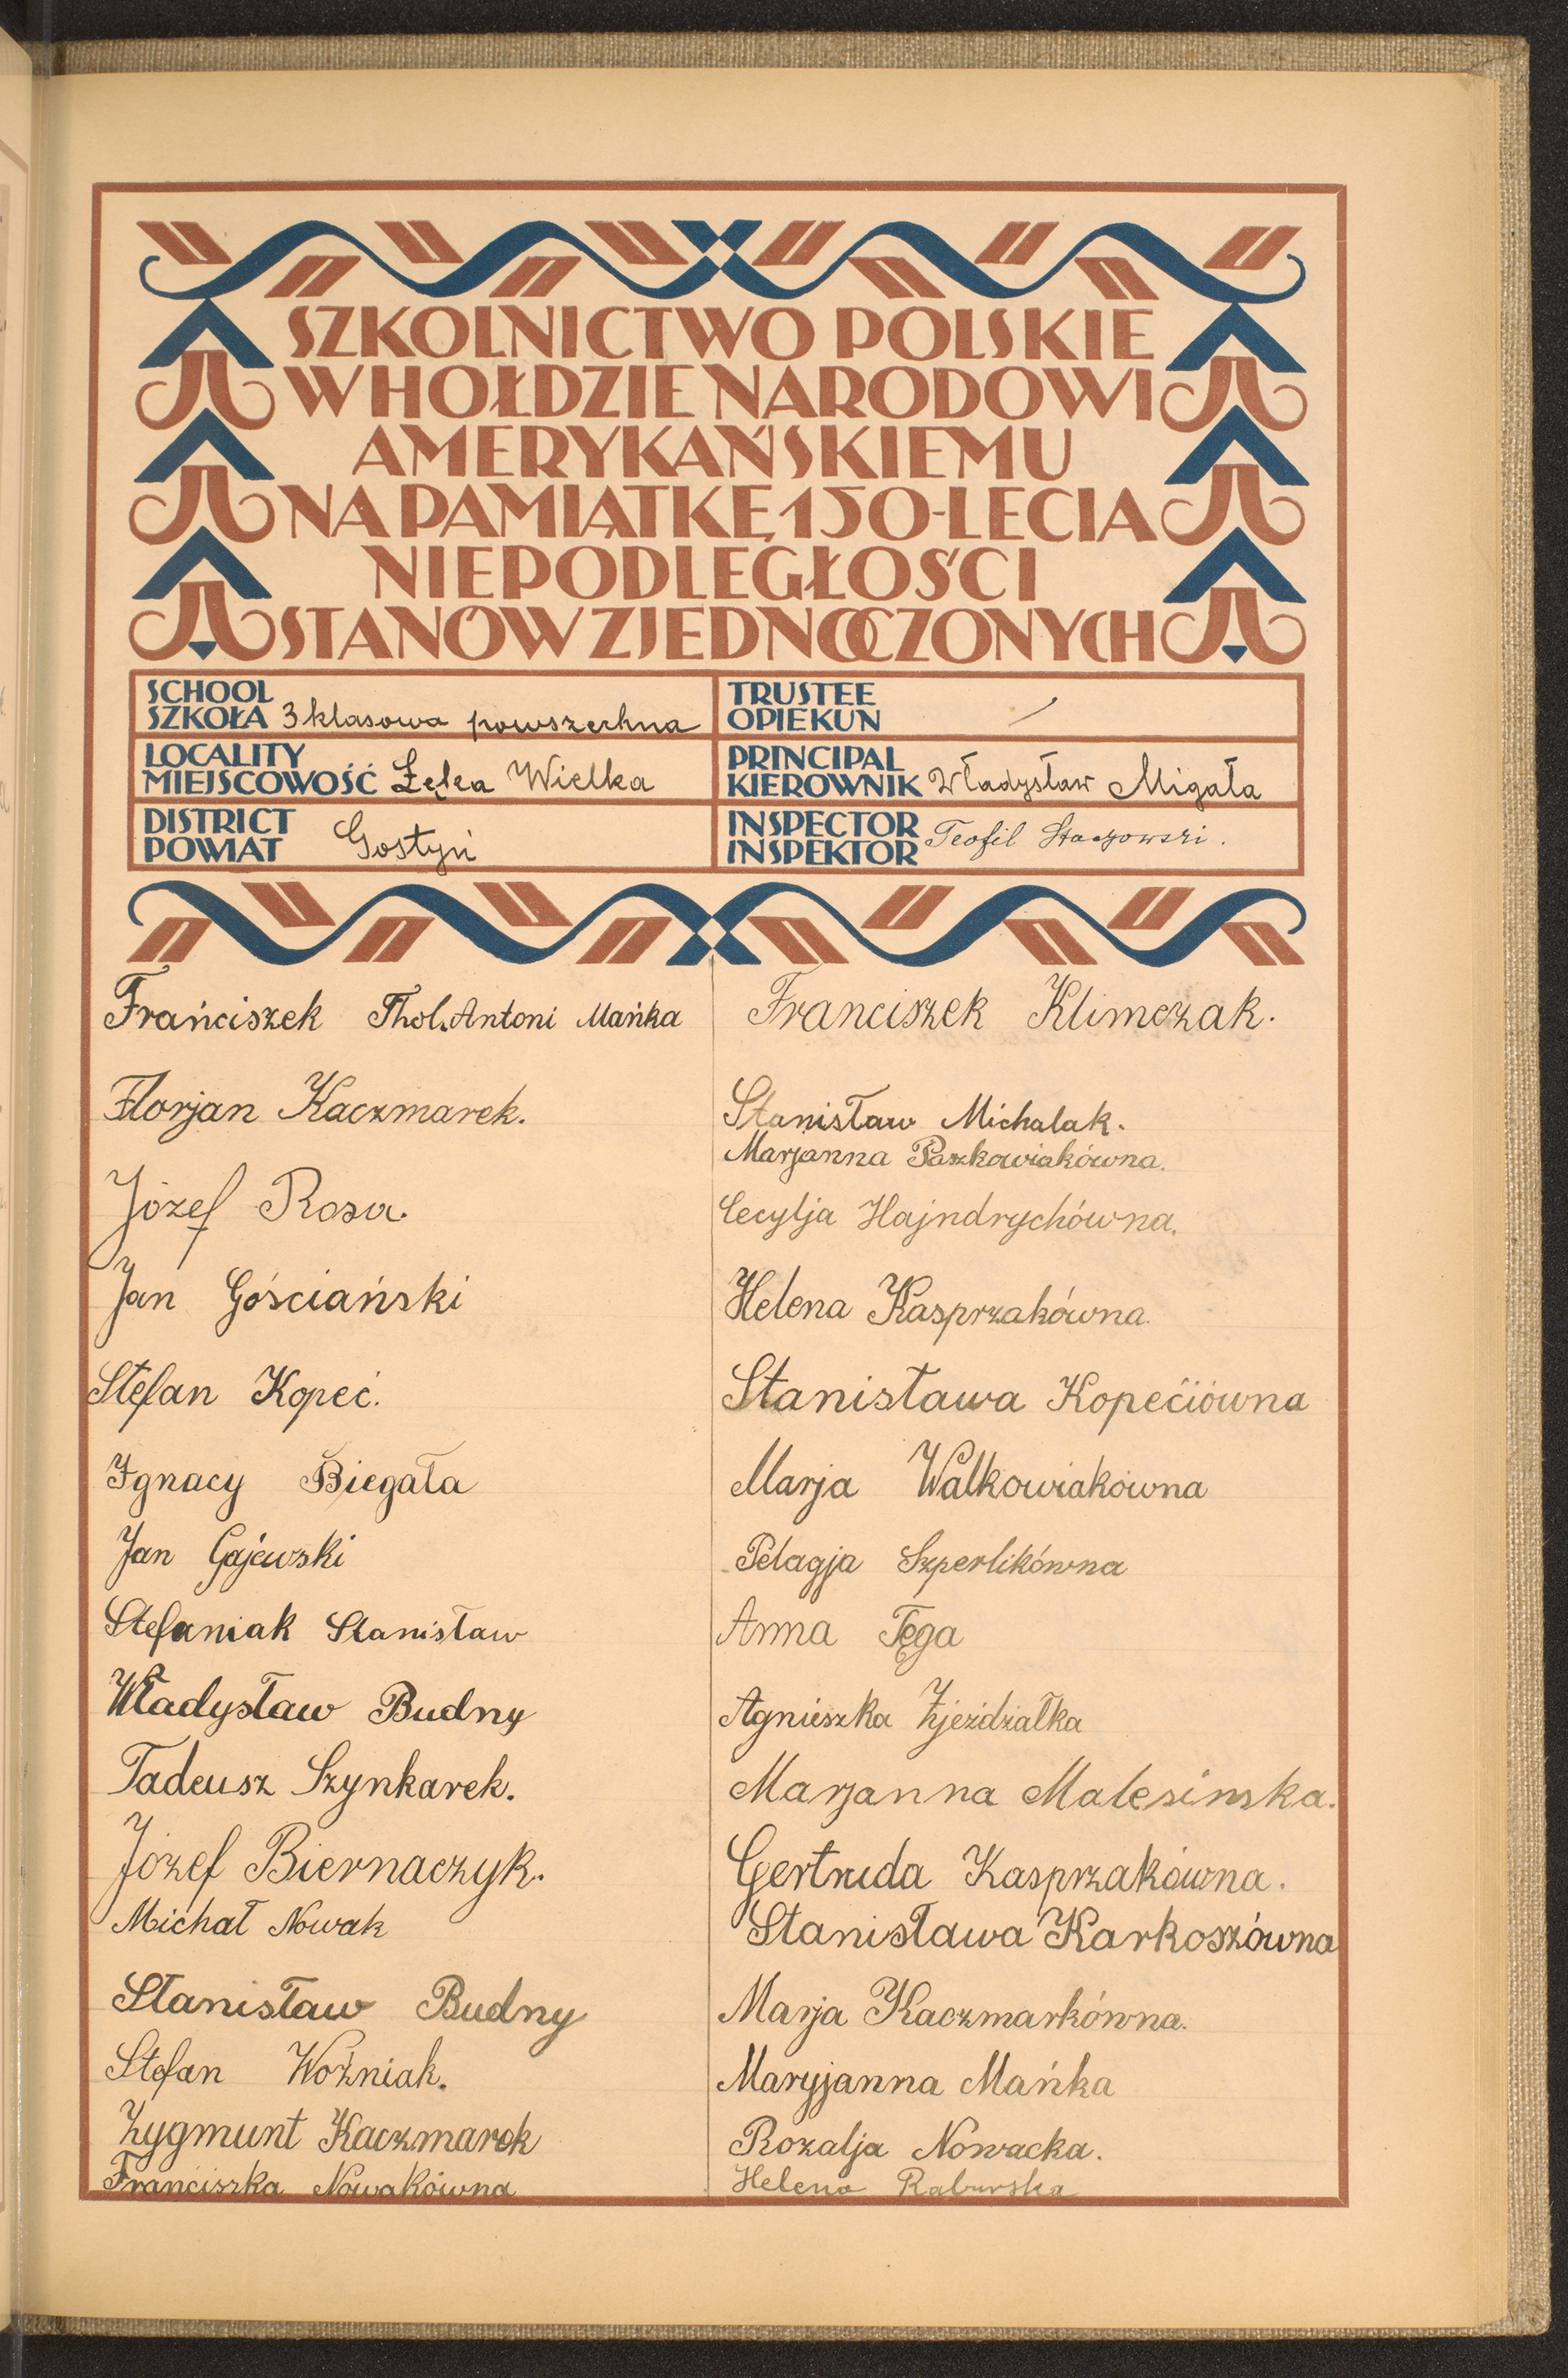 SZKOLNICTWO POLSKIE
W HOŁDZIE NARODOWI
AMERYKAŃSKIEMU
NA PAMIĄTKĘ 150-LECIA
NIEPODLEGŁOŚCI
STANÓW ZJEDNOCZONYCH
SCHOOL
SZKOŁA 3 klasowa powszechna
TRUSTEE
OPIEKUN
LOCALITY
MIEJSCOWOŚĆ Łęka Wielka
PRINCIPAL
KIEROWNIK Władysław Migała
DISTRICT
POWIAT Gostyń
INSPECTOR
INSPEKTOR Teofil
Frańciszek Thol. Antoni Mańka
Florjan Kaczmarek.
Józef Rosa.
Jan Gościański
Stefan Kopeć.
Ignacy Biegała
Jan Gajewski
Stefaniak Stanisław
Władysław Budny
Tadeusz Szynkarek.
Józef Biernaczyk.
Michał Nowak
Stanisław Budny
Stefan Woźniak.
Zygmunt Kaczmarek
Franciszka Nowakówna
Franciszek Klimczak.
Stanisław Michalak.
Marjanna Paszkowiakówna.
Cecylja Hajndrychówna.
Helena Kasprzakówna.
Stanisława Kopećiówna
Marja Walkowiakówna
Pelagja Szperlikówna
Anna Tęga
Agnieszka Zjeżdżałka
Marjanna Malesinska.
Gertruda Kasprzakówna.
Stanisława Karkoszówna
Marja Kaczmarkówna.
Maryjanna Mańka
Rozalja Nowacka.
Helena Raburska